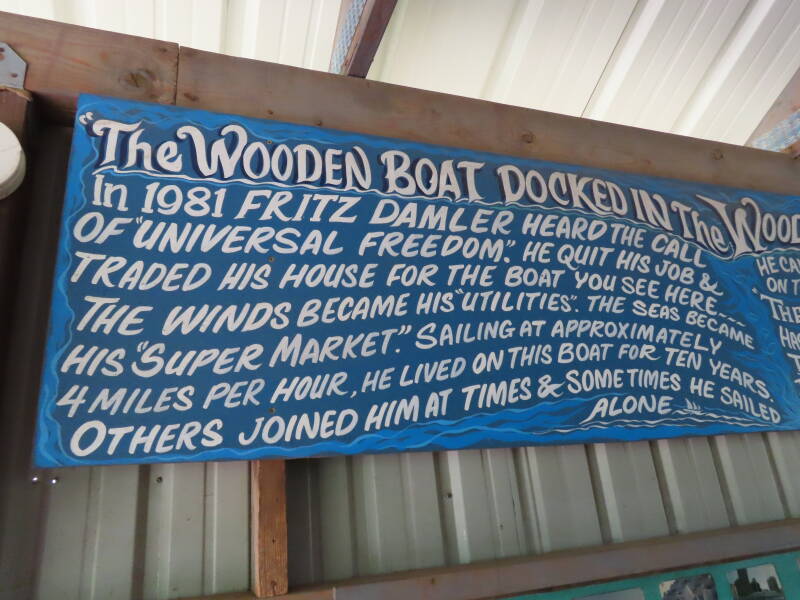 "The WOODEN BOAT DOCKED IN The
In 1981 FRITZ DAMLER HEARD THE CALL
OF "UNIVERSAL FREEDOM". HE QUIT HIS JOB &
TRADED HIS HOUSE FOR THE BOAT YOU SEE HERE...
THE WINDS BECAME HIS "UTILITIES". THE SEAS BECAME
HIS "SUPER MARKET." SAILING AT APPROXIMATELY
4 MILES PER HOUR, HE LIVED ON THIS BOAT FOR TEN YEARS.
OTHERS JOINED HIM AT TIMES & SOMETIMES HE SAILED
ALONE
HE
ON